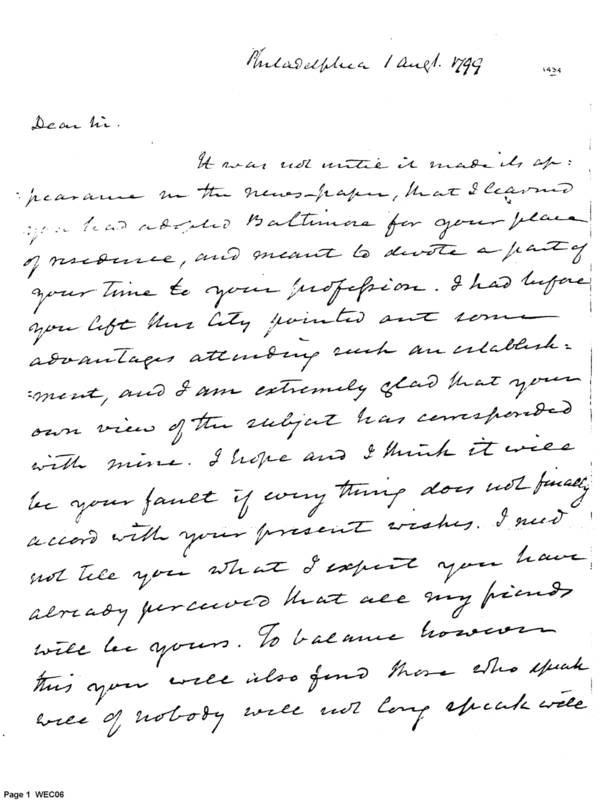 Philadelphia 1 Augt. 1799
1434
Dear Sir.
It was not untill it made its ap=
=pearance in the news-paper, that I learned
you had adopted Baltimore for your place
of residence, and meant to devote a part of
your time to your profession. I had before
you left this City pointed out some
advantages attending such an establish=
=ment, and I am extremely glad that your
own view of the subject has corresponded
with mine. I hope and I think it will
be your fault if every thing does not finally
accord with your present wishes. I need
not tell you what I expect you have
already perceived that all my friends
will be yours. To balance however
this you will also find those who speak
well of nobody will not long speak well
Page 1 WEC06